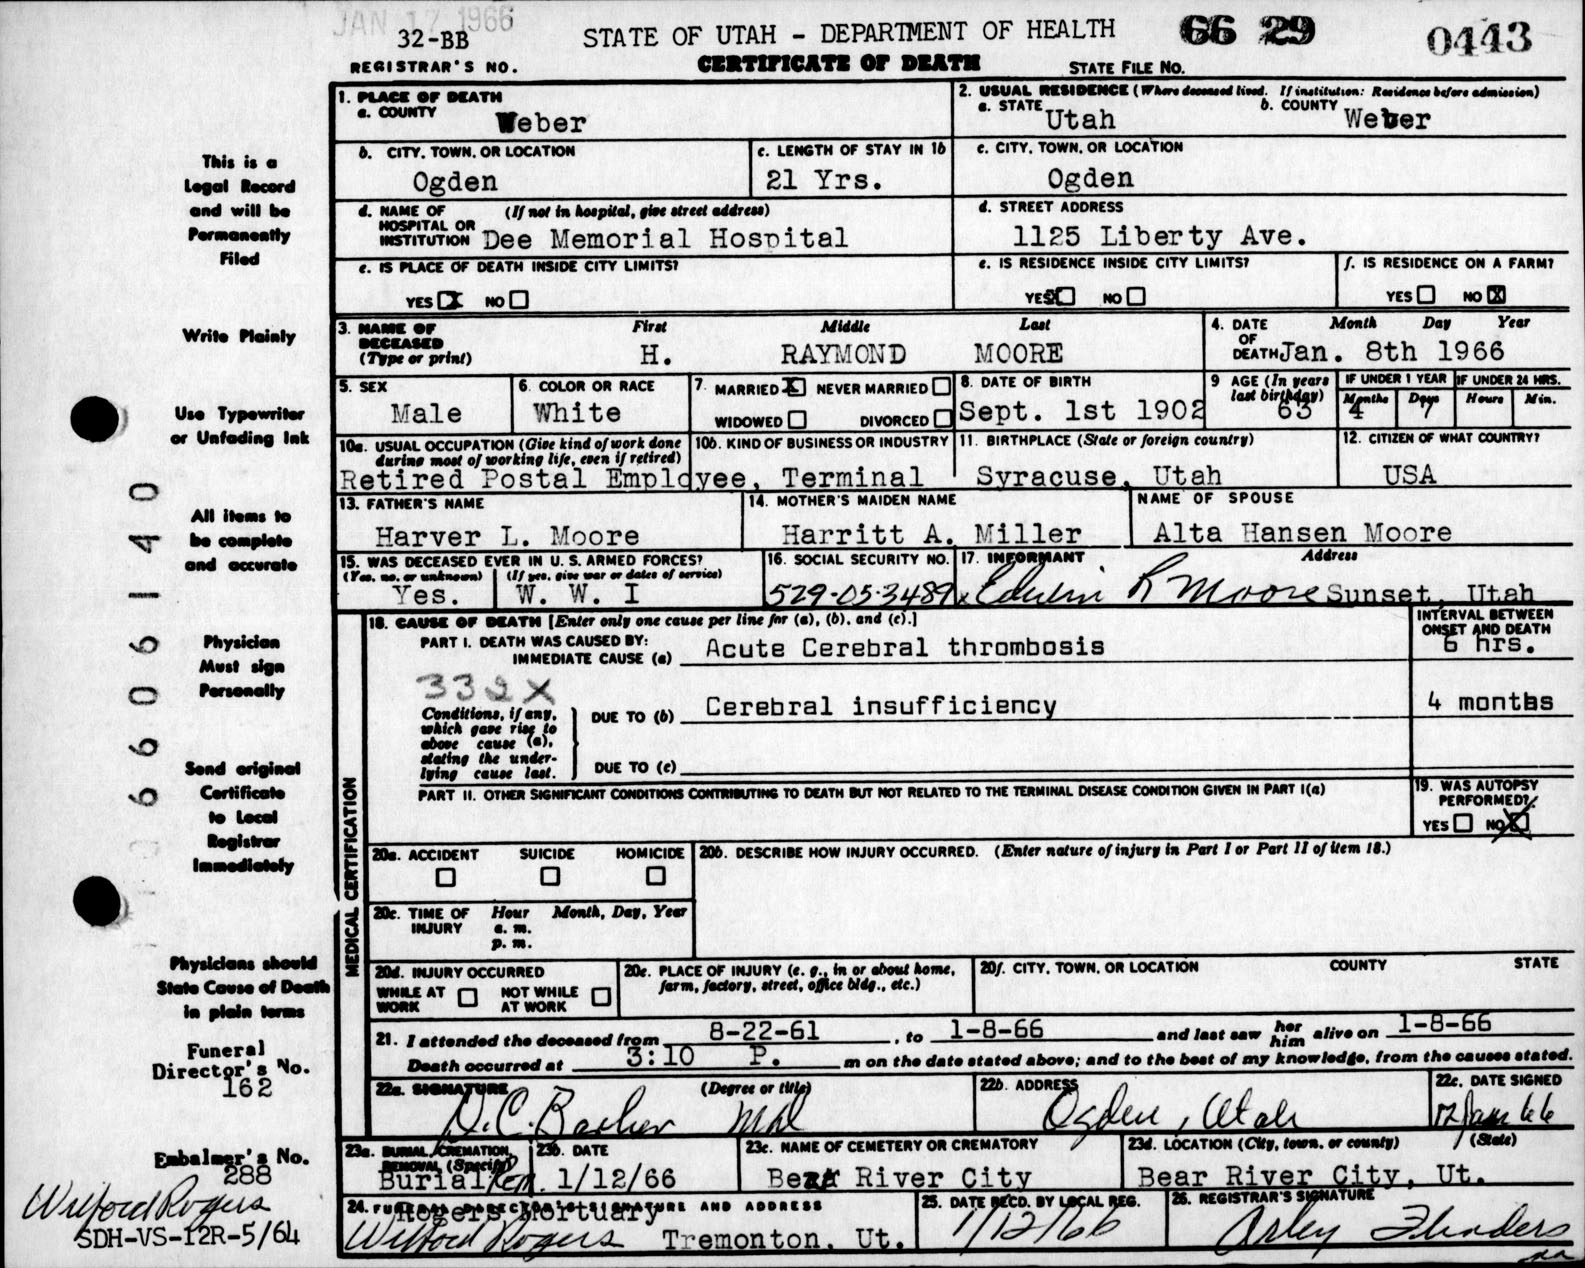 JAN 17 1966
32-BB
REGISTRAR'S NO.
STATE OF UTAH - DEPARTMENT OF HEALTH
CERTIFICATE OF DEATH
66 29
STATE FILE NO.
0443
This is a
Legal Record
and will be
Permanently
Filed
Write Plainly
Use Typewriter
or Unfading Ink
All items to
be complete
and accurate
Physician
Must sign
Personally
Send original
Certificate
to Local
Registrar
Immediately
Physicians should
State Cause of Death
in plain terms
Funeral
Director's No.
162
Embalmer's No.
288
Wilford Rogers
SDH-VS-12R-5/64
66 06 140
1. PLACE OF DEATH
a. COUNTY Weber
2. USUAL RESIDENCE (Where deceased lived. If institution: Residence before admission)
a. STATE Utah b. COUNTY Weber
b. CITY, TOWN, OR LOCATION
Ogden
c. LENGTH OF STAY IN 1b
21 Yrs.
c. CITY, TOWN, OR LOCATION
Ogden
d. NAME OF (If not in hospital, give street address)
HOSPITAL OR
INSTITUTION Dee Memorial Hospital
d. STREET ADDRESS
1125 Liberty Ave.
e. IS PLACE OF DEATH INSIDE CITY LIMITS?
YES X NO
e. IS RESIDENCE INSIDE CITY LIMITS?
YES X NO
f. IS RESIDENCE ON A FARM?
YES NO X
3. NAME OF
DECEASED
(Type or print)
First Middle Last
H. RAYMOND MOORE
4. DATE OF DEATH Month Day Year
Jan. 8th 1966
5. SEX
Male
6. COLOR OR RACE
White
7. MARRIED X NEVER MARRIED
WIDOWED DIVORCED
8. DATE OF BIRTH
Sept. 1st 1902
9 AGE (In years
last birthday)
63
IF UNDER 1 YEAR IF UNDER 24 HRS.
Months Days Hours Min.
4 7
10a. USUAL OCCUPATION (Give kind of work done
during most of working life, even if retired)
10b. KIND OF BUSINESS OR INDUSTRY
Retired Postal Employee, Terminal
11. BIRTHPLACE (State or foreign country)
Syracuse, Utah
12. CITIZEN OF WHAT COUNTRY?
USA
13. FATHER'S NAME
Harver L. Moore
14. MOTHER'S MAIDEN NAME
Harritt A. Miller
NAME OF SPOUSE
Alta Hansen Moore
15. WAS DECEASED EVER IN U. S. ARMED FORCES?
(Yes, no, or unknown) (If yes, give war or dates of service)
Yes. W. W. I
16. SOCIAL SECURITY NO.
529-05-3489
17. INFORMANT Address
x Edwin R Moore Sunset, Utah
MEDICAL CERTIFICATION
18. CAUSE OF DEATH [Enter only one cause per line for (a), (b), and (c).]
INTERVAL BETWEEN
ONSET AND DEATH
PART I. DEATH WAS CAUSED BY:
IMMEDIATE CAUSE (a) Acute Cerebral thrombosis 6 hrs.
332X
Conditions, if any,
which gave rise to
above cause (a),
stating the under-
lying cause last.
DUE TO (b) Cerebral insufficiency 4 months
DUE TO (c)
PART II. OTHER SIGNIFICANT CONDITIONS CONTRIBUTING TO DEATH BUT NOT RELATED TO THE TERMINAL DISEASE CONDITION GIVEN IN PART I(a)
19. WAS AUTOPSY
PERFORMED?
YES NO X
20a. ACCIDENT SUICIDE HOMICIDE
20b. DESCRIBE HOW INJURY OCCURRED. (Enter nature of injury in Part I or Part II of item 18.)
20c. TIME OF INJURY Hour Month, Day, Year
a. m.
p. m.
20d. INJURY OCCURRED
WHILE AT WORK NOT WHILE AT WORK
20e. PLACE OF INJURY (e. g., in or about home,
farm, factory, street, office bldg., etc.)
20f. CITY, TOWN, OR LOCATION COUNTY STATE
21. I attended the deceased from 8-22-61, to 1-8-66 and last saw her him alive on 1-8-66
Death occurred at 3:10 P. m on the date stated above; and to the best of my knowledge, from the causes stated.
22a. SIGNATURE (Degree or title)
D. C. Barker MD
22b. ADDRESS
Ogden, Utah
22c. DATE SIGNED
12 Jan 66
23a. BURIAL, CREMATION,
REMOVAL (Specify)
Burial Rem.
23b. DATE
1/12/66
23c. NAME OF CEMETERY OR CREMATORY
Bear River City
23d. LOCATION (City, town, or county) (State)
Bear River City, Ut.
24. FUNERAL DIRECTOR'S SIGNATURE AND ADDRESS
Rogers Mortuary
Wilford Rogers Tremonton, Ut.
25. DATE REC'D. BY LOCAL REG.
1/12/66
26. REGISTRAR'S SIGNATURE